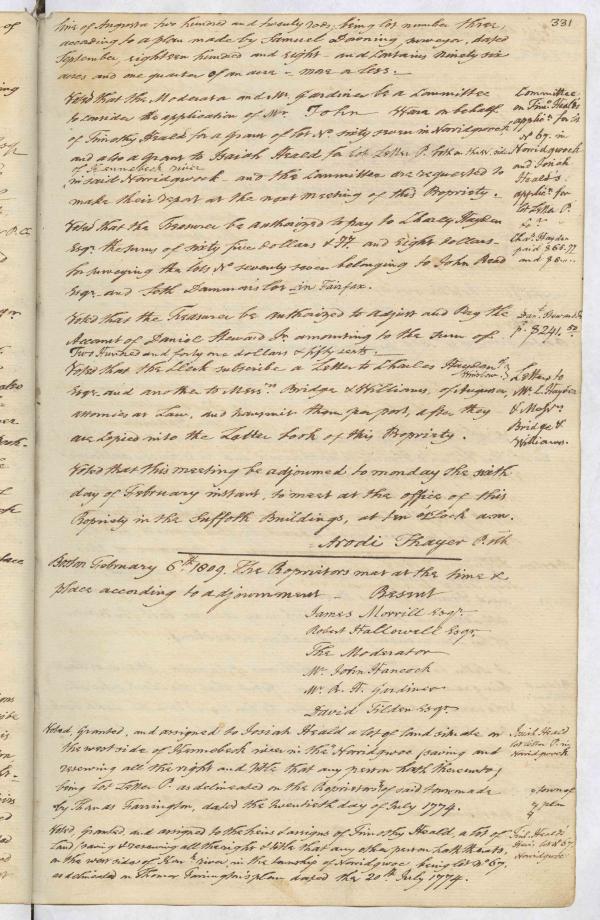 331
line of Augusta two hundred and twenty rods, being lot number three,
according to a plan made by Samuel Downing, surveyor, dated
September, eighteen hundred and eight - and contains ninety six
acres and one quarter of an acre - more or less.
Voted that the Moderator and Mr. Gardiner be a Committee
to consider the application of Mr. John Ware on behalf
of Timothy Heald for a grant of Lot No. sixty seven in Norridgwock
and also a grant to Josiah Heald for Lot Letter P. both on the w. side
of Kennebeck river
in said Norridgwock - and the Committee are requested to
make their report at the next meeting of this Propriety.
Committee
on Timo. Heald's
applicn. for lot
No 67. in
Norridgwock
and Josiah
Heald's
applicn. for
lot Letter P.
Voted that the Treasurer be authorized to pay to Charles Hayden
Esqr. the sums of sixty five dollars & 77 and Eight dollars
for surveying the lots No. seventy seven belonging to John Reed
Esqr. and Seth Dammons lot in Fairfax.
Chas. Hayden
paid $65.77
and $8
Voted that the Treasurer be authorized to adjust and Pay the
Account of Daniel Steward Jr. amounting to the sum of
Two Hundred and forty one dollars & fifty cents.
Danl. Steward Jr.
p. $241.50
Voted that the Clerk subscribe a Letter to Charles Hayden
Winslow
Esqr. and another to Messrs. Bridge & Williams, of Augusta,
attornies at Law, and transmit them per post, after they
are copied into the Letter book of this Propriety.
Letters to
Mr. C. Hayden
& Messrs.
Bridge &
Williams.
Voted that this meeting be adjourned to monday the sixth
day of February instant, to meet at the office of this
Propriety in the Suffolk Buildings, at ten o'Clock a.m.
Arodi Thayer P. Clk
Boston February 6th. 1809. The Proprietors met at the time &
place according to adjournment - Present
James Morrill Esqr.
Robert Hallowell Esqr.
The Moderator
Mr. John Hancock
Mr. R. H. Gardiner
David Tilden Esqr.
Voted, Granted, and assigned to Josiah Heald a lot of land situate on
the west side of Kennebeck river in the Norridgwoc (saving and
reserving all the right and title that any person hath thereunto)
being lot Letter P. as delineated on the Proprietors of said town made
by Thomas Farrington, dated the twentieth day of July 1774.
Josiah Heald
lot letter P. in
Norridgwock
town of
plan
Voted, granted, and assigned to the heirs & assigns of Timothy Heald, a lot of
Land (saving & reserving all the right & title that any other person hath thereto,
on the west side of Ken. river, in the township of Norridgwoc being lot No 67.
as delineated on Thomas Farrington's plan dated the 20th. July 1774.
Heald's
Heirs lot No 67.
Norridgwoc